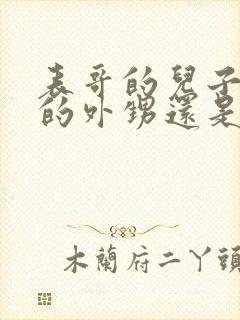 表哥的兒子
的外甥還是
木蘭府二丫頭